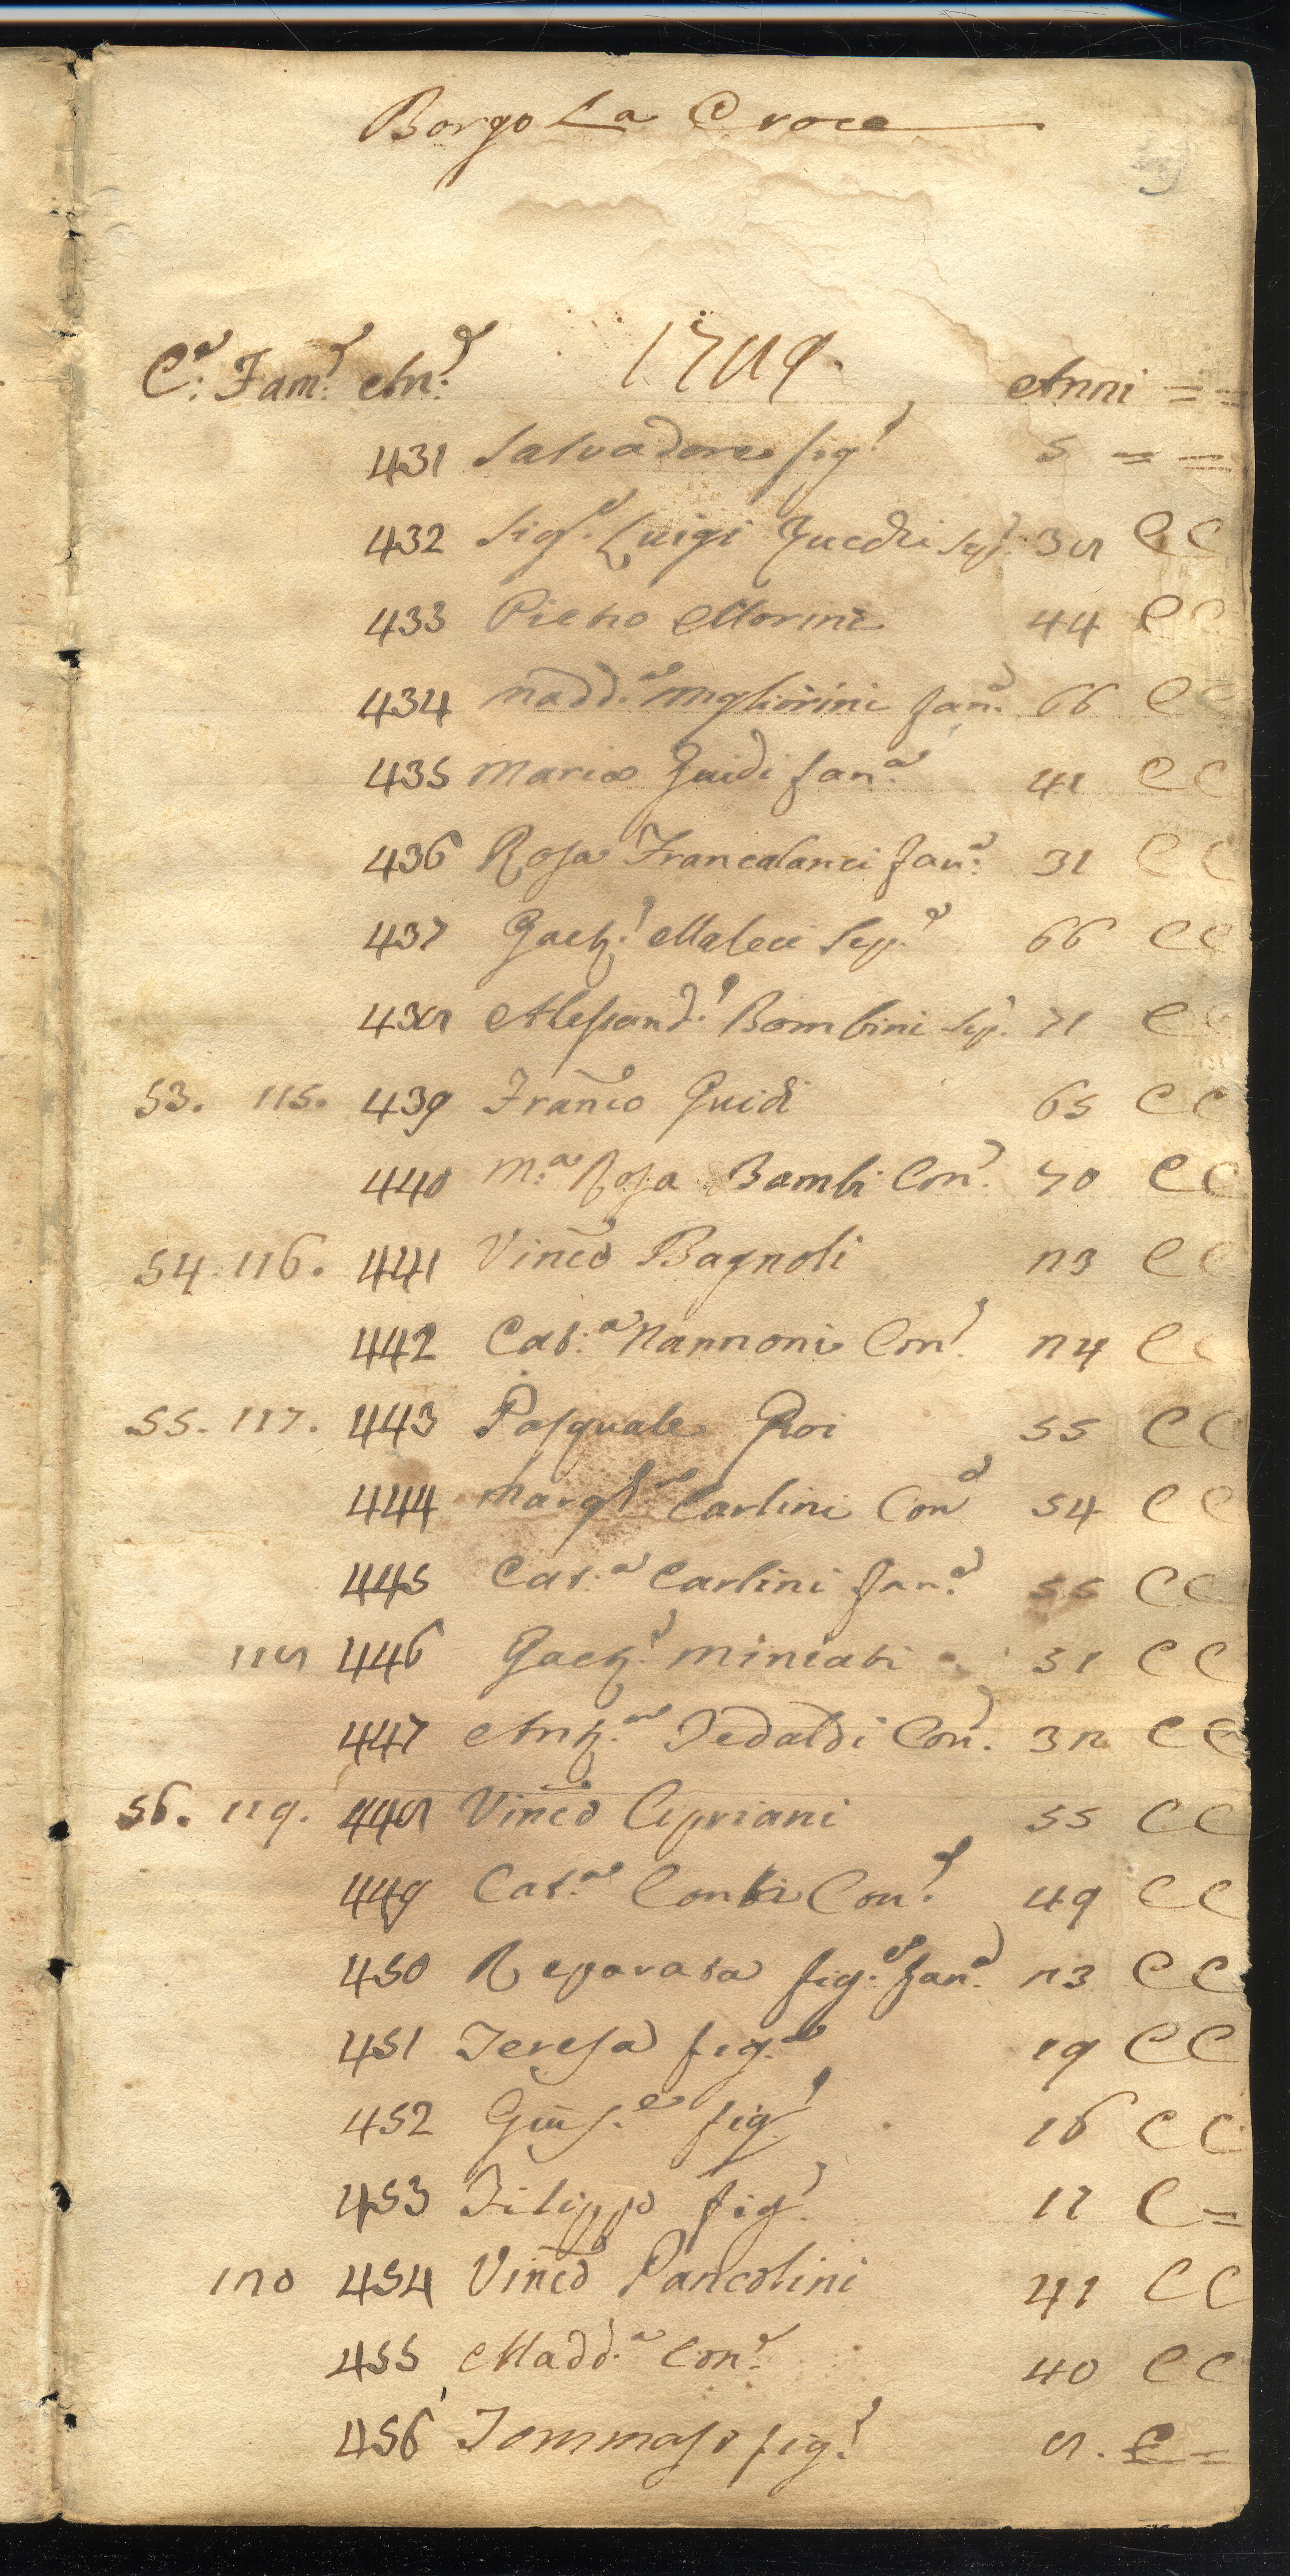 Borgo La Croce
C.e Fam.e An.e 1749. Anni = =
431 Salvadore fig.o 5 = =
432 Sig.e Luigi Zucchi Sep. 38 C C
433 Pietro Morini 44 C C
434 Madd.a Migliorini Fan.a 66 C C
435 Maria Guidi fan.a 41 C C
436 Rosa Francalanci fan.a 31 C C
437 Gaet.o Maleci Sep.e 66 C C
438 Alessand.o Bombini Sep. 71 C C
53. 115. 439 Franco Guidi 65 C C
440 M.a Rosa Bambi Con. 70 C C
54. 116. 441 Vinco Bagnoli 23 C C
442 Cat.a Nannoni Con. 24 C C
55. 117. 443 Pasquale Groi 55 C C
444 Margt.a Carlini Con 54 C C
445 Cat.a Carlini fan.a 55 C C
118 446 Gaet.o Miniati 31 C C
447 Ant.a Tedaldi Con. 32 C C
56. 119. 448 Vinco Cipriani 55 C C
449 Cat.a Conti Con. 49 C C
450 Reparata fig.a fan.a 23 C C
451 Teresa fig.a 19 C C
452 Gius.e fig. 16 C C
453 Filippo fig. 11 C =
120 454 Vinco Pancolini 41 C C
455 Madd.a Con. 40 C C
456 Tommaso fig.o 8. C =